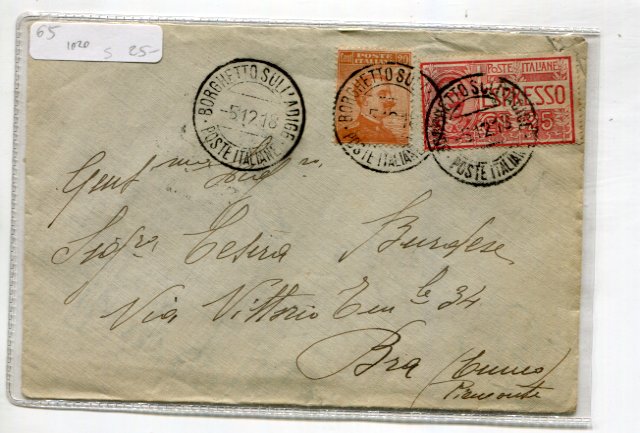 65
1020
S 25-
BORGHETTO SULL'ADIGE
-5.12.18
POSTE ITALIANE
POSTE
ITALIANE
20
BORGHETTO SUL
POSTE ITALIAN
POSTE ITALIANE
ESPRESSO
25
POSTE ITALIANE
Sigra Cesira Burdese
Via Vittorio Em le 34
Bra (Cuneo)
Piemonte